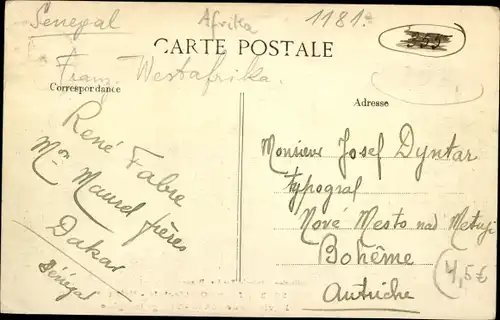 Senegal
Afrika
1181.
CARTE POSTALE
Franz. Westafrika.
Correspondance
Adresse
René Fabre
Mon Maurel frères
Dakar
Sénégal
Monsieur Josef Dyntar
typograf
Nove Mesto nad Metují
Bohême
Autriche
4,5€